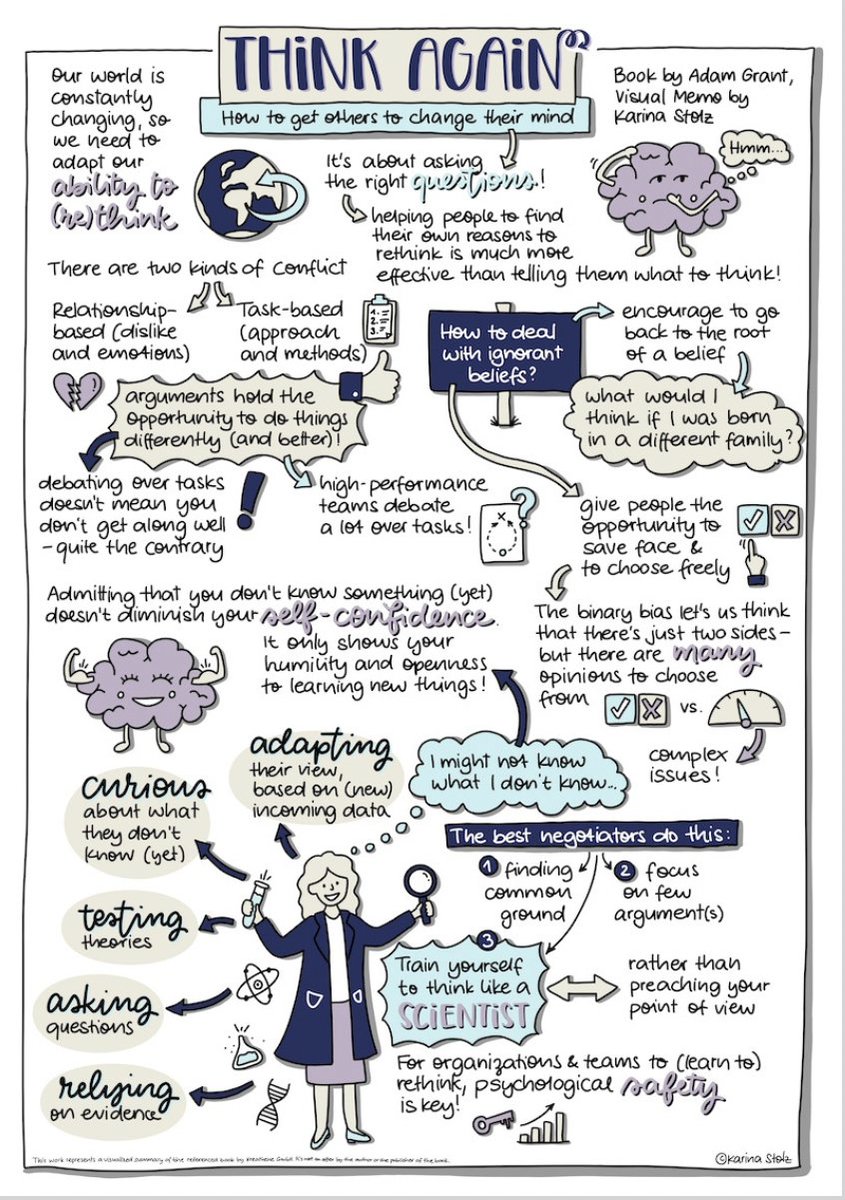 THINK AGAIN
How to get others to change their mind
Our world is
constantly
changing, so
we need to
adapt our
ability to
(re)think
Book by Adam Grant,
Visual Memo by
Karina Stolz
Hmm...
It's about asking
the right questions!
helping people to find
their own reasons to
rethink is much more
effective than telling them what to think!
There are two kinds of conflict
Relationship-
based (dislike
and emotions)
Task-based
(approach
and methods)
1.
2.
3.
arguments hold the
opportunity to do things
differently (and better)!
debating over tasks
doesn't mean you
don't get along well
- quite the contrary
high-performance
teams debate
a lot over tasks!
x
?
How to deal
with ignorant
beliefs?
encourage to go
back to the root
of a belief
what would I
think if I was born
in a different family?
give people the
opportunity to
save face &
to choose freely
The binary bias let's us think
that there's just two sides -
but there are many
opinions to choose
from
vs.
complex
issues!
Admitting that you don't know something (yet)
doesn't diminish your self-confidence.
It only shows your
humility and openness
to learning new things!
I might not know
what I don't know...
adapting
their view,
based on (new)
incoming data
curious
about what
they don't
know (yet)
testing
theories
asking
questions
relying
on evidence
The best negotiators do this:
1 finding
common
ground
2 focus
on few
argument(s)
3
Train yourself
to think like a
SCIENTIST
rather than
preaching your
point of view
For organizations & teams to (learn to)
rethink, psychological safety
is key!
©Karina Stolz